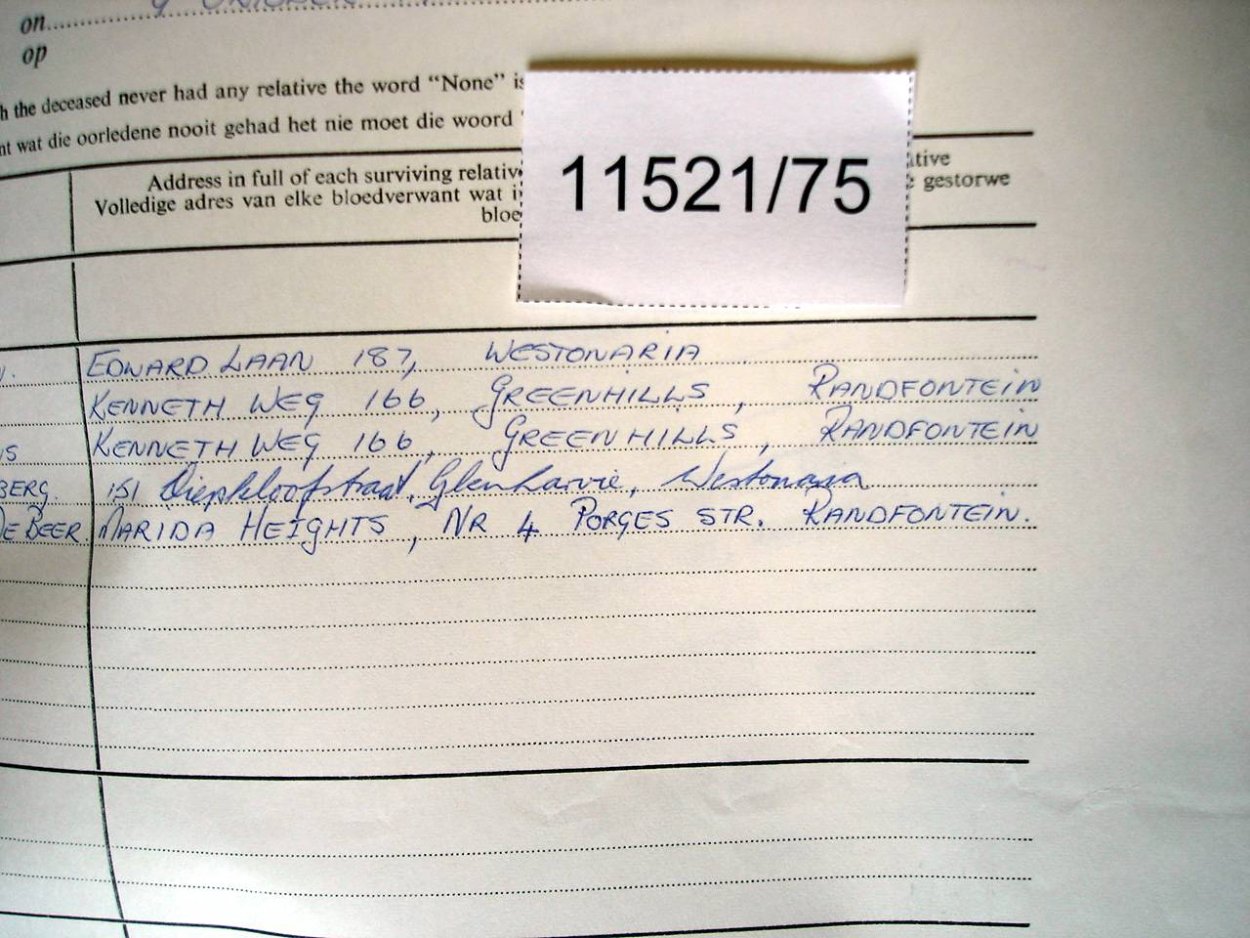 on
op
h the deceased never had any relative the word “None” is
nt wat die oorledene nooit gehad het nie moet die woord
11521/75
Address in full of each surviving relativ ative
Volledige adres van elke bloedverwant wat i gestorwe
bloe
EDWARD LAAN 187, WESTONARIA
KENNETH WEG 166, GREENHILLS, RANDFONTEIN
US KENNETH WEG 166, GREENHILLS, RANDFONTEIN
BERG. 151 Diepkloofstraat, Glenharvie, Westonaria
DE BEER MARIDA HEIGHTS, NR 4 PORGES STR. RANDFONTEIN.